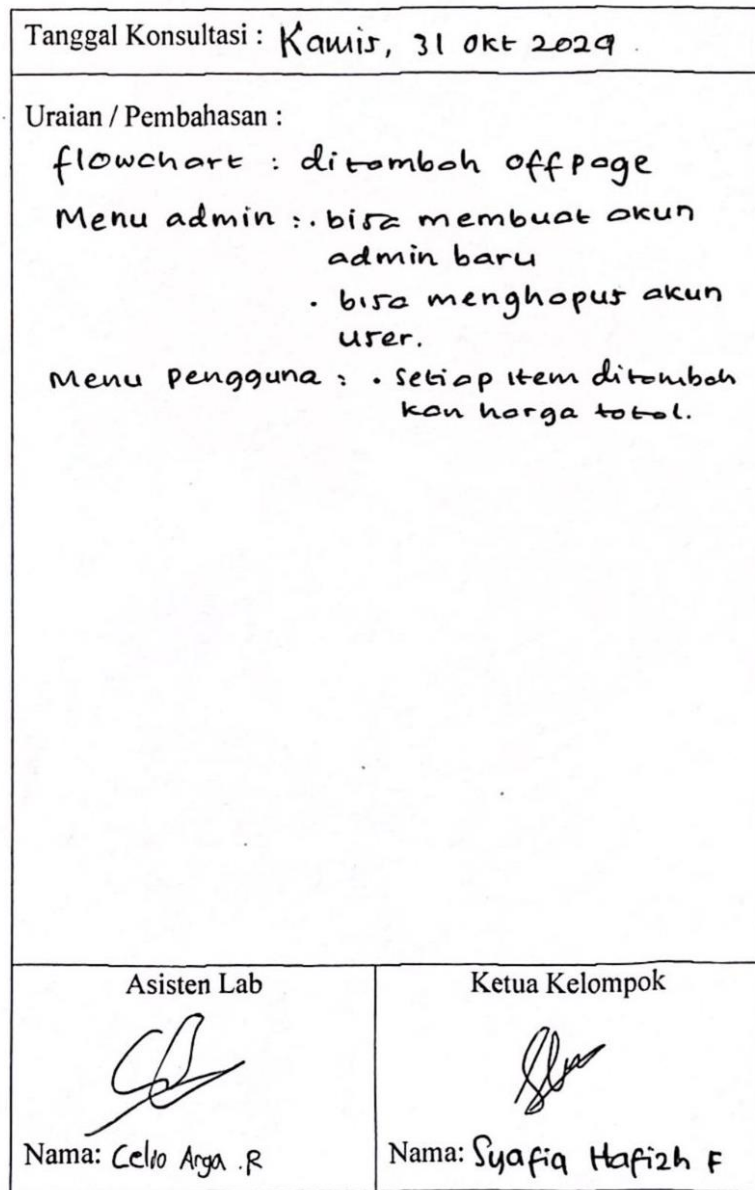 Tanggal Konsultasi : Kamis, 31 Okt 2024.
Uraian / Pembahasan :
flowchart : ditambah offpage
Menu admin : . bisa membuat akun
admin baru
. bisa menghapus akun
user.
Menu Pengguna : . Setiap item ditambah
kan harga total.
Asisten Lab
Ketua Kelompok
Nama: Celio Arga .R
Nama: Syafiq Hafizh F